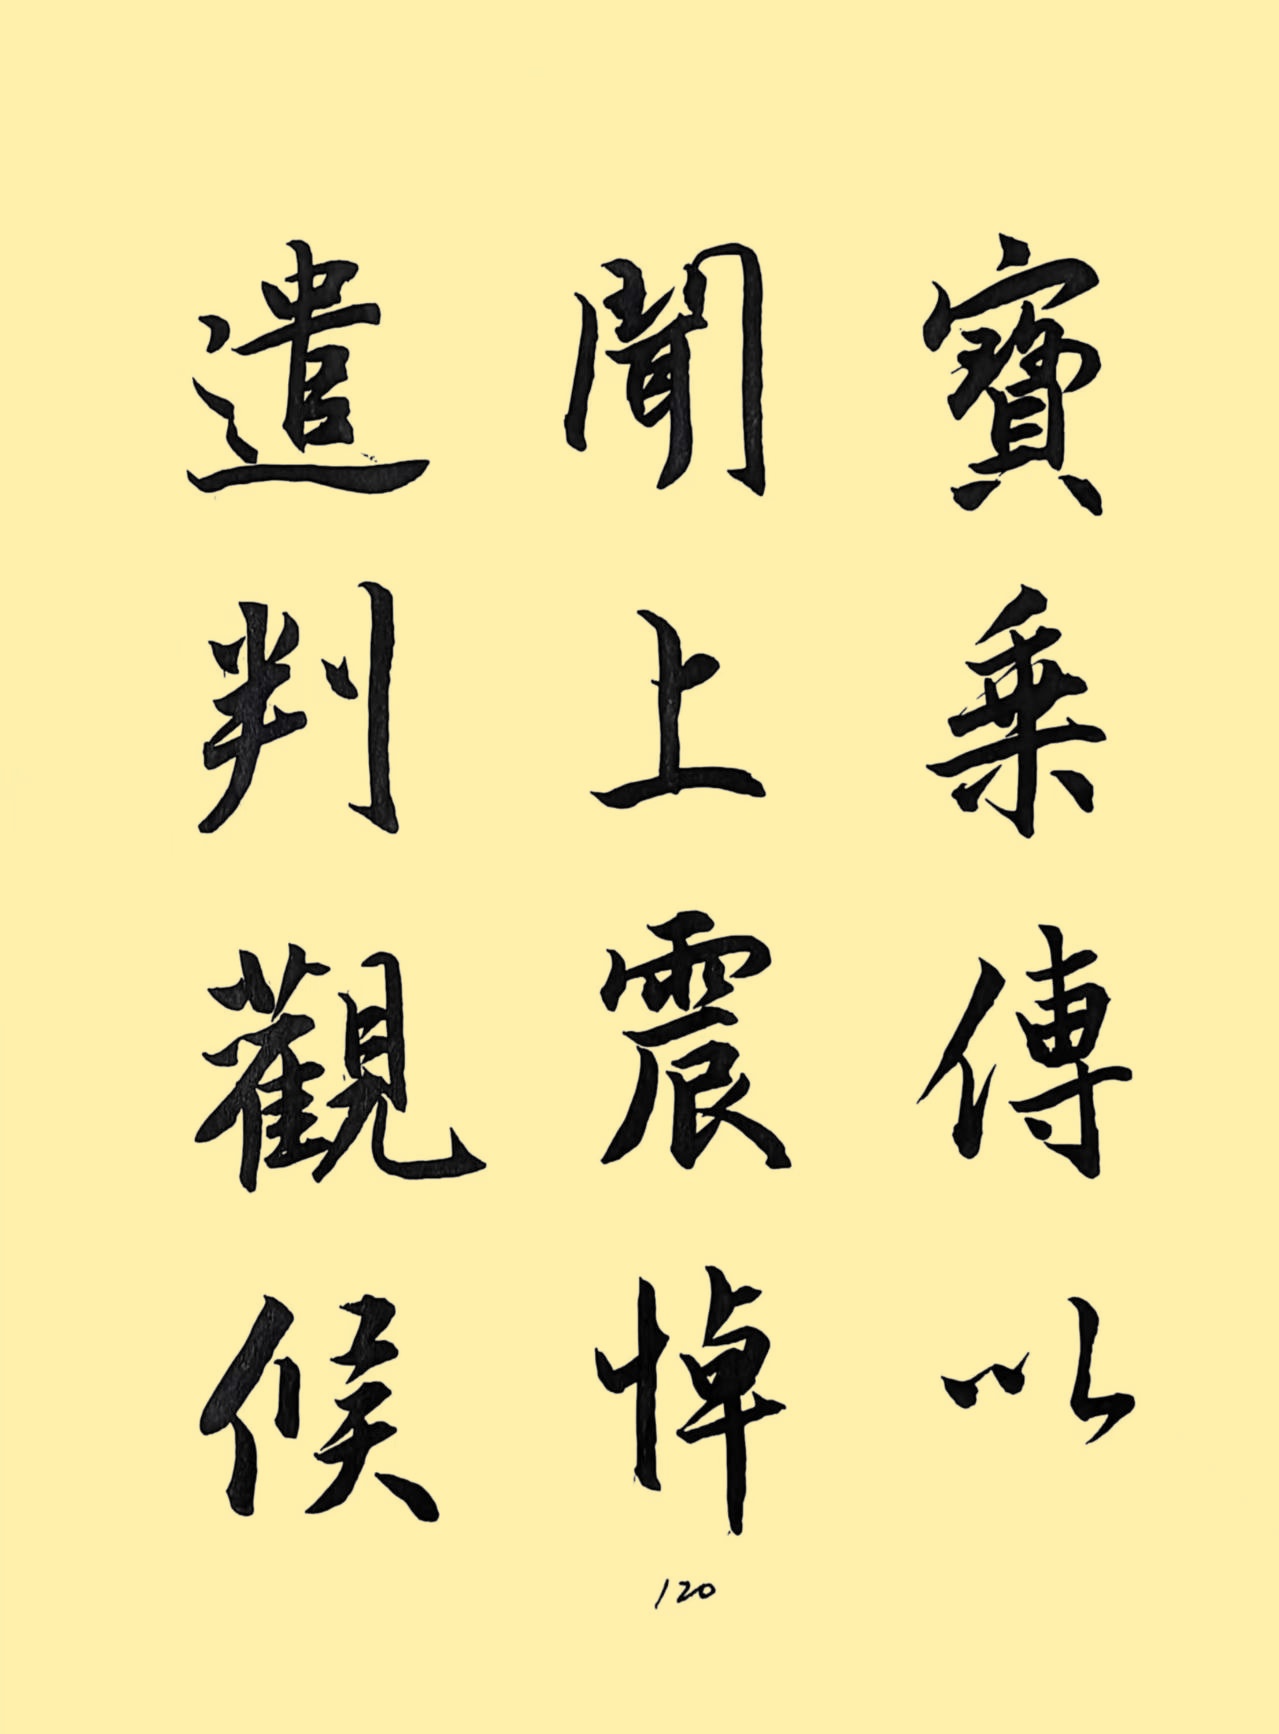 寶乘傳以
聞上震悼
遣判觀候
120